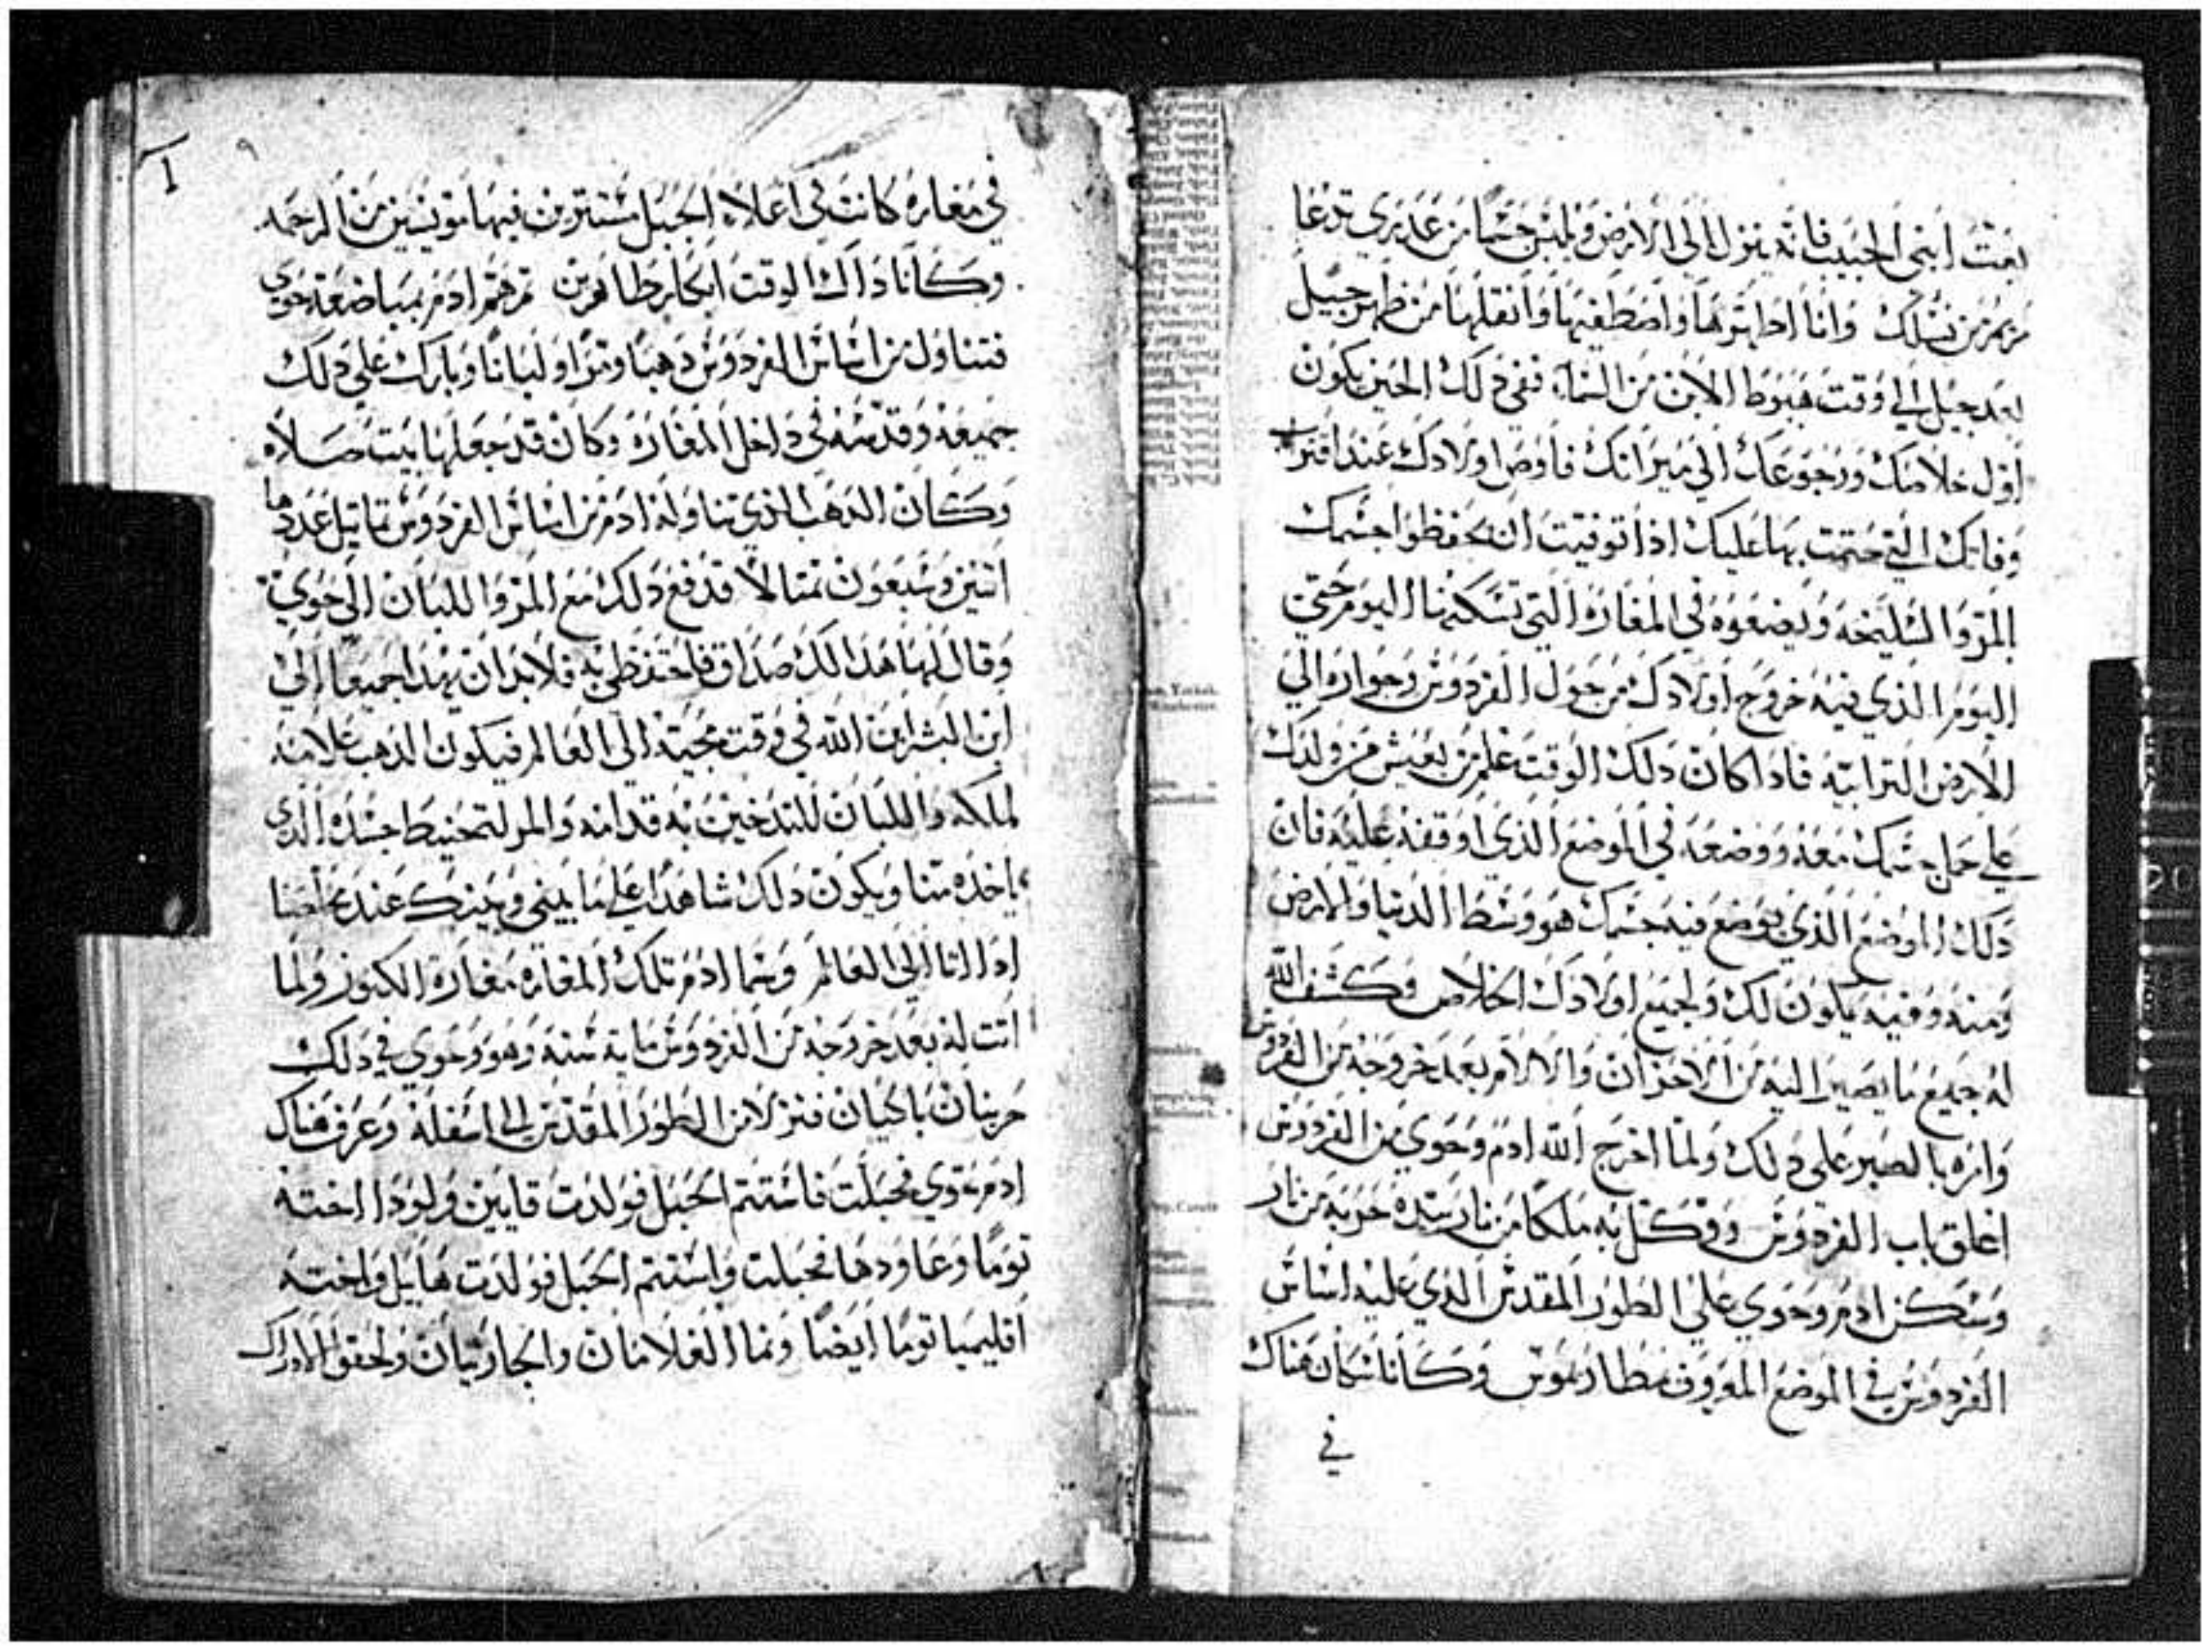 بعث ابني الحبيب فانه ينزل الي الارض ويلبس جسما من عدري تدعا
مريم من نسلك وانا اطهرها واصطفيها وانقلها من ظهر جيل
بعد جيل الي وقت هبوط الابن من السماء ففي دلك الحين يكون
اول خلاصك ورجوعك الي ميراتك فاوص اولادك عند اقتراب
وفاتك التي حتمت بها عليك ادا توفيت ان يحفظوا جسمك
بالمر والسليخه ويضعوه في المغاره التي تسكنها اليوم حتي
اليوم الذي فيه خروج اولادك من حول الفردوس وجواره الي
الارض الترابيه فادا كان دلك الوقت علم من يعيش من ولدك
علي حمل جسمك معه ووضعه في الموضع الذي اوقفه عليه فان
دلك الموضع الذي يوضع فيه جسمك هو وسط الدنيا والارض
ومنه وفيه يكون لك ولجميع اولادك الخلاص وكشف الله
له جميع ما يصير اليه من الاحزان والالام بعد خروجه من الفردوس
وامره بالصبر علي دلك ولما اخرج الله ادم وحوي من الفردوس
اغلق باب الفردوس ووكل به ملكا من نار بيده حربه من نار
وسكن ادم وحوي علي الطور المقدس الذي عليه اساس
الفردوس في الموضع المعروف وكانا سكان هناك
في
٩
في مغاره كانت في اعلاه الجبل مستترين فيها مويسين من الرحمه
وكانا داك الوقت ابكار طاهرين تم هم ادم بمباضعة حوي
فتناول من اساس الفردوس دهبا ومرا ولبانا وبارك علي دلك
جميعه وقدسه في داخل المغاره وكان قد جعلها بيت صلاه
وكان الدهب الذي تناوله ادم من اساس الفردوس تماتيل عددها
اتنين وسبعون تمتالا قدفع دلك مع المر واللبان الي حوي
وقال لها هدا لك صداق فاحتفظي به فلا بد ان يهدا جميعا الي
ابن البشر ابن الله في وقت مجيته الي العالم فيكون الدهب علامة
لملكه واللبان للتدخين به قدامه والمر لتحنيط جسده الذي
ياخده منا ويكون دلك شاهدا علي ما بيني وبينك عند مخلصنا
ادا اتا الي العالم وسما ادم تلك المغاره مغارة الكنوز ولما
اتت له بعد خروجه من الفردوس مايه سنه وهو وحوي في دلك
حزينان باكيان فنزلا من الطور المقدس الي اسفله وعرف هناك
ادم حوي فحبلت فاستتم الحبل فولدت قايين ولودا اخته
توما وعاودها فحبلت واستتم الحبل فولدت هابيل واخته
اقليميا توما ايضا ونما الغلامان والجاريتان ولحقوا الادراك